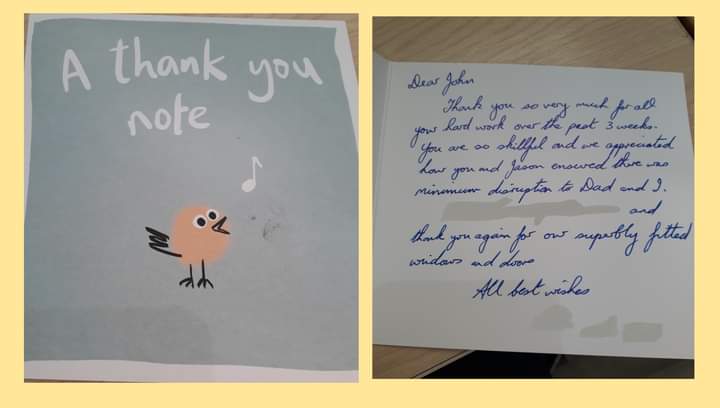 A thank you
note
Dear John
Thank you so very much for all
your hard work over the past 3 weeks.
You are so skillful and we appreciated
how you and Jason ensured there was
minimum disruption to Dad and I.
and
thank you again for our superbly fitted
windows and doors
All best wishes